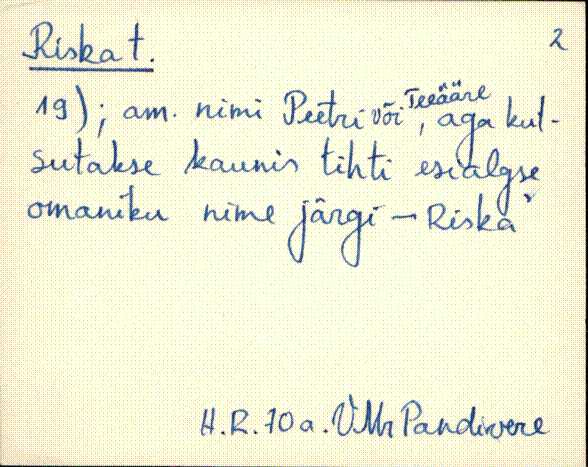 Riska t.
2
19); am. nimi Peetri või Teeääre, aga kut-
sutakse kaunis tihti esialgse
omaniku nime järgi – Riska
H.R. 70 a. VMr Pandivere